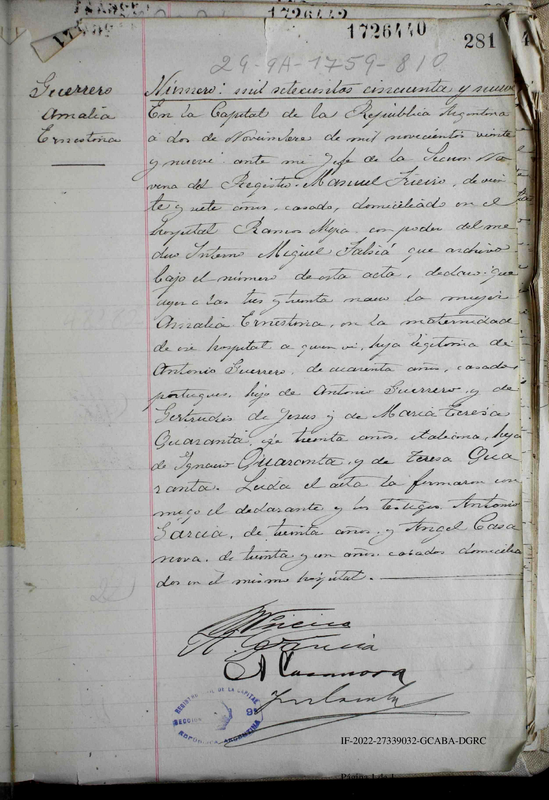 1726442
1726440
281
29-9A-1759-810
Guerrero
Amalia
Ernestina
Número: mil setecientos cincuenta y nueve
En la Capital de la República Argentina
á dos de Noviembre de mil novecientos veinte
y nueve ante mi Jefe de la Seccion No-
vena del Registro, Manuel Freiro, de vein-
te y siete años, casado, domiciliado en el
hospital Ramos Mejia con poder del me-
dico Interno Miguel que archivo
bajo el número de esta acta, declaró: que
ayer a las tres y treinta nació la mujer
Amalia Ernestina, en la maternidad
de ese hospital a quien vi, hija legitima de
Antonio Guerrero, de cuarenta años, casado
portugues, hijo de Antonio Guerrero, y de
Gertrudis de Jesus y de Maria Teresa
Quaranta, de treinta años, italiana, hija
de Ignacio Quaranta, y de Teresa Qua
ranta. Leida el acta la firmaron con
migo el declarante y los testigos Antonio
Garcia, de treinta años, y Angel Casa
nova, de treinta y un años, casados domicilia
dos en el mismo hospital.
A. Garcia
A Casanova
REGISTRO CIVIL DE LA CAPITAL
SECCION 9ª
REPUBLICA ARGENTINA
IF-2022-27339032-GCABA-DGRC
Página 1 de 1